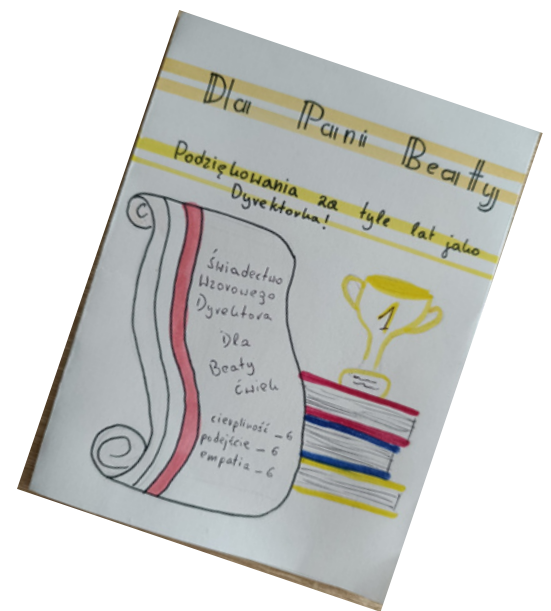 Dla Pani Beaty
Podziękowania za tyle lat jako
Dyrektorka!
Świadectwo
Wzorowego
Dyrektora
Dla
Beaty
Ćwiek
cierpliwość - 6
podejście - 6
empatia - 6
1